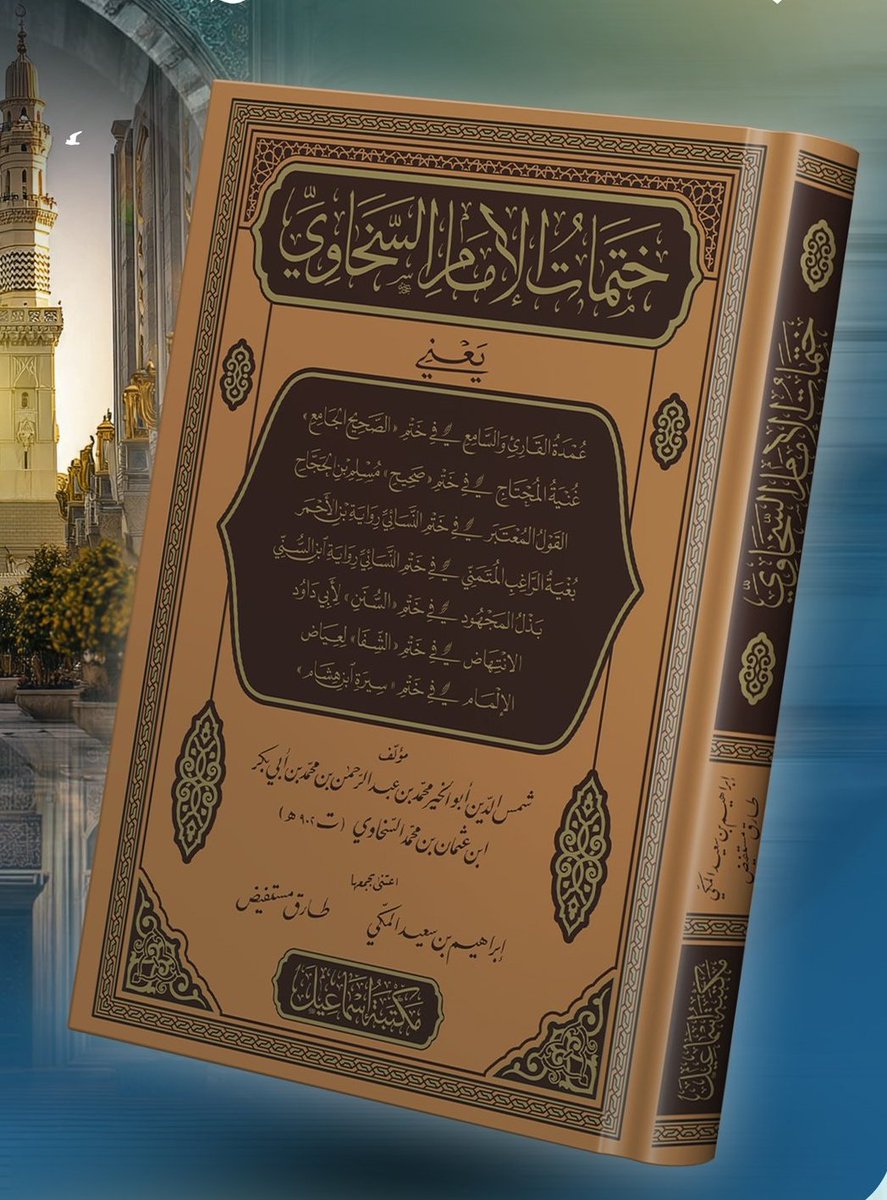 ختمات الإمام السخاوي
يعني
عمدة القارئ والسامع في ختم «الصحيح الجامع»
غنية المحتاج في ختم «صحيح» مسلم بن الحجاج
القول المعتبر في ختم النسائي رواية بن الأحمر
بغية الراغب المتمني في ختم النسائي رواية ابن السني
بذل المجهود في ختم «السنن» لأبي داود
الانتهاض في ختم «الشفا» لعياض
الإلمام في ختم «سيرة ابن هشام»
مؤلف
شمس الدين أبو الخير محمد بن عبد الرحمن بن محمد بن أبي بكر
ابن عثمان بن محمد السخاوي (ت ٩٠٢ هـ)
اعتنى بجمعها
إبراهيم بن سعيد المكي
طارق مستفيض
مكتبة اسماعيل
ختمات الإمام السخاوي
إبراهيم بن سعيد المكي
طارق مستفيض
مكتبة اسماعيل